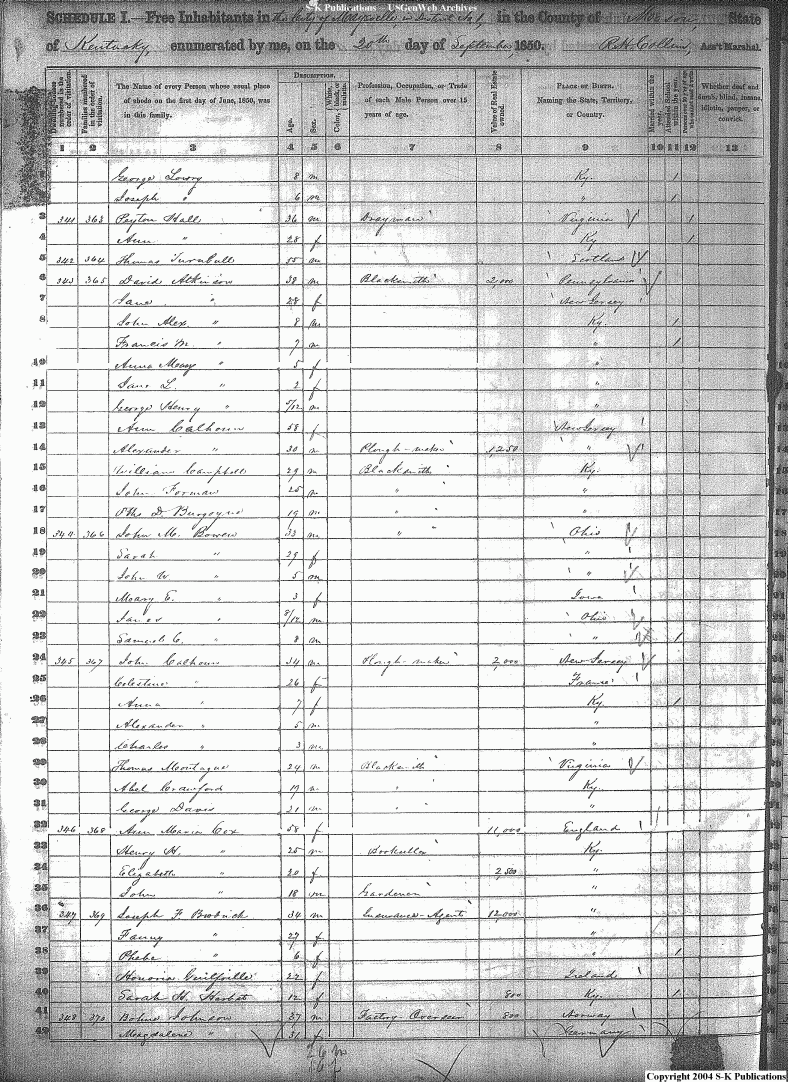 S-K Publications - USGenWeb Archives
SCHEDULE I.—Free Inhabitants in the City of Maysville in District No. 1, in the County of Mason, State
of Kentucky, enumerated by me, on the 20th day of September, 1850. R. H. Collins, Ass't Marshal.
Dwelling-houses numbered in the order of visitation.
Families numbered in the order of visitation.
The Name of every Person whose usual place of abode on the first day of June, 1850, was in this family.
DESCRIPTION.
Age.
Sex.
Color, White, black, or mulatto.
Profession, Occupation, or Trade of each Male Person over 15 years of age.
Value of Real Estate owned.
PLACE OF BIRTH. Naming the State, Territory, or Country.
Married within the year.
Attended School within the year.
Whether deaf and dumb, blind, insane, idiotic, pauper, or convict.
1 2 3 4 5 6 7 8 9 10 11 12 13
George Lowry 8 m Ky. 1
Joseph " 6 m " 1
3 341 363 Peyton Hall 36 m Drayman Virginia 1
4 Ann " 28 f Ky 1
5 342 364 Thomas Turnbull 55 m Scotland
6 343 365 David Atkinson 39 m Blacksmith 2,000 Pennsylvania
7 Jane " 28 f New Jersey
8 John Alex. " 8 m Ky. 1
Francis M. " 7 m " 1
10 Anna Meary " 5 f "
11 Jane L. " 2 f "
12 George Henry " 5/12 m "
13 Ann Calhoun 58 f New Jersey
14 Alexander " 30 m Plough-maker 1,250 "
15 William Campbell 29 m Blacksmith Ky.
16 John Forman 25 m " "
17 D. Burgoyne 19 m " "
18 344 366 John M. Bowen 33 m " Ohio
19 Sarah " 29 f "
20 John W. " 5 m "
21 Meary E. " 3 f Iowa
22 James " 8/12 m Ohio
23 Samuel C. " 8 m " 1
24 345 367 John Calhoun 34 m Plough-maker 2,000 New Jersey
25 Celestine " 26 f France
26 Anna " 7 f Ky. 1
27 Alexander " 5 m "
28 Charles " 3 m "
29 Thomas Montague 24 m Blacksmith Virginia
30 Abel Crawford 19 m " Ky.
31 George Davis 21 m " "
32 346 368 Ann Maria Cox 58 f 11,000 England
33 Henry H. " 25 m Bookseller Ky.
34 Elizabeth " 20 f 2,500 "
35 John " 18 m Gardener "
36 347 369 Joseph F. Brodrick 34 m Insurance-Agent 12,000 "
37 Fanny " 27 f "
38 Phebe " 6 f " 1
39 Honoria Guilfoille 22 f Ireland
40 Sarah H. Harbet 12 f 800 Ky. 1
41 348 370 Johnson 37 m Factory Overseer 800 Norway
42 Meagdalene " 31 f Germany
26 m
16 f
Copyright 2004 S-K Publications